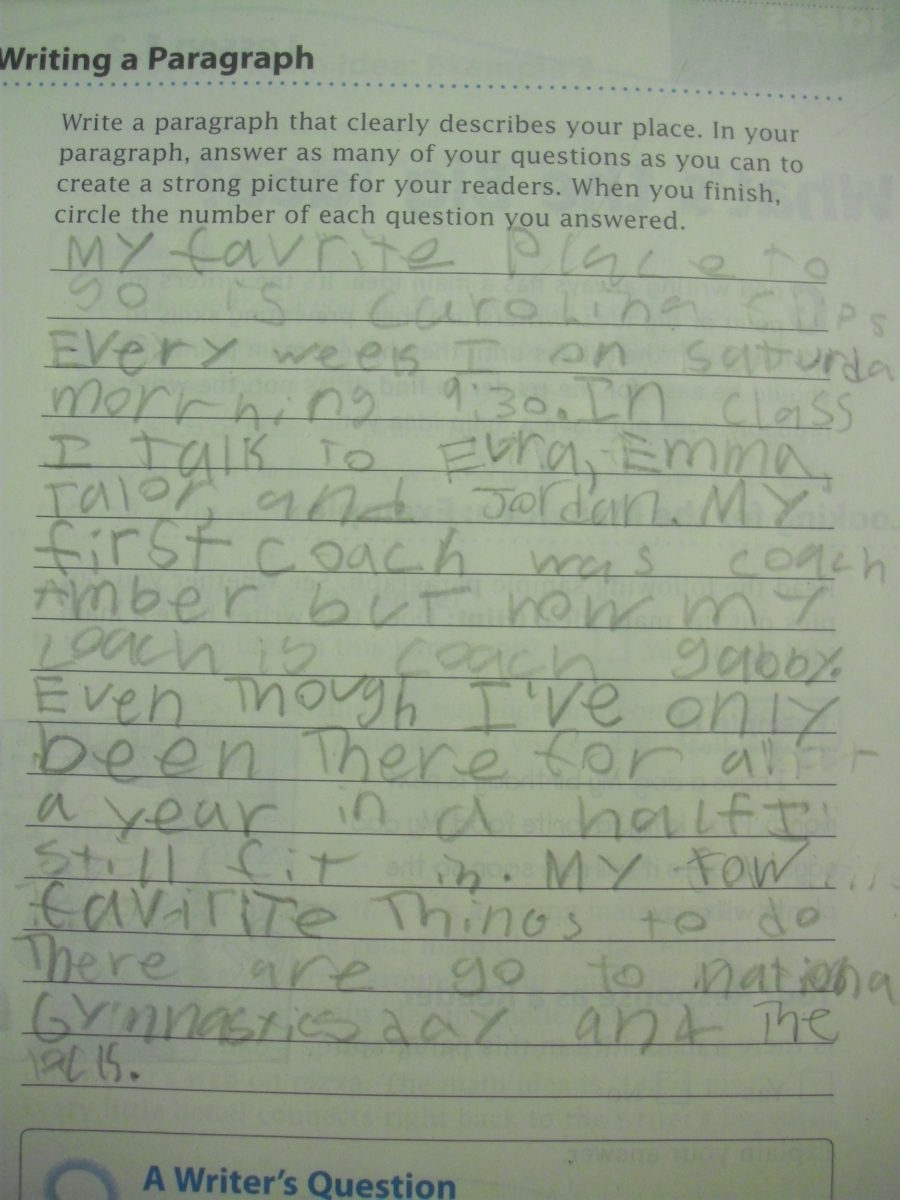 Writing a Paragraph
Write a paragraph that clearly describes your place. In your
paragraph, answer as many of your questions as you can to
create a strong picture for your readers. When you finish,
circle the number of each question you answered.
My favrite place to
go is Carolina
Every week I on saturda
morrning 9:30. In class
I talk to Ebra, Emma
Talor, and Jordan. My
first coach was coach
Amber but now my
coach is coach gabby.
Even though I've only
been there for
a year in a half I
still fit in. My
favirite things to do
there are go to nationa
Gymnastics day and the
A Writer's Question